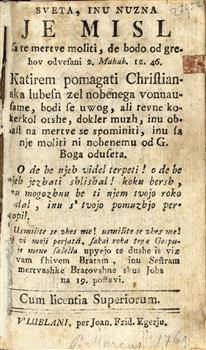 SVETA, INU NUZNA
JE MISL
sa te mertve moliti, de bodo od gre-
hov odvesani 2. Mahab. 12. 46.
Katirem pomagati Christian-
ska lubesn zel nobenega vonnau-
same, bodi se uwog, ali revne ko-
kerkol otshe, dokler muzh, inu ob-
last na mertve se spominiti, inu sa
nje moliti ni nobenemu od G.
Boga oduseta.
O de be njeh videl terpeti! o de be
njeh jezhati shlishal! koku bersh,
nu mogozhnu be ti njem tvojo roko
dal, inu s' tvojo pomuzhjo per-
Usmilite se zhes me! usmilite se zhes me!
vi moji perjatli, sakaj roka tega Gospu-
je mene sadella upyejo te dushe is viz
vam shivem Bratam, inu Sestram
mertvashke Bratovshne skus Joba
na 19. postavi.
Cum licentia Superiorum.
V LUBLANI, per Joan. Frid. Egerju.